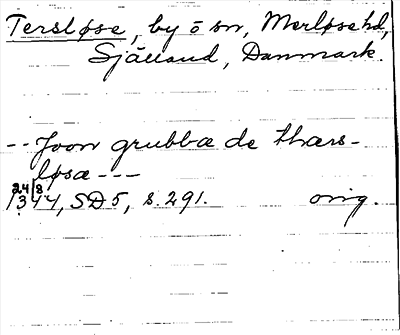 Tersløse, by ō sn, Merløsehd,
Själland, Danmark.
-- Joon grubbæ de thærs-
løsæ ---
24/8
1344, SD5, s. 291. orig.